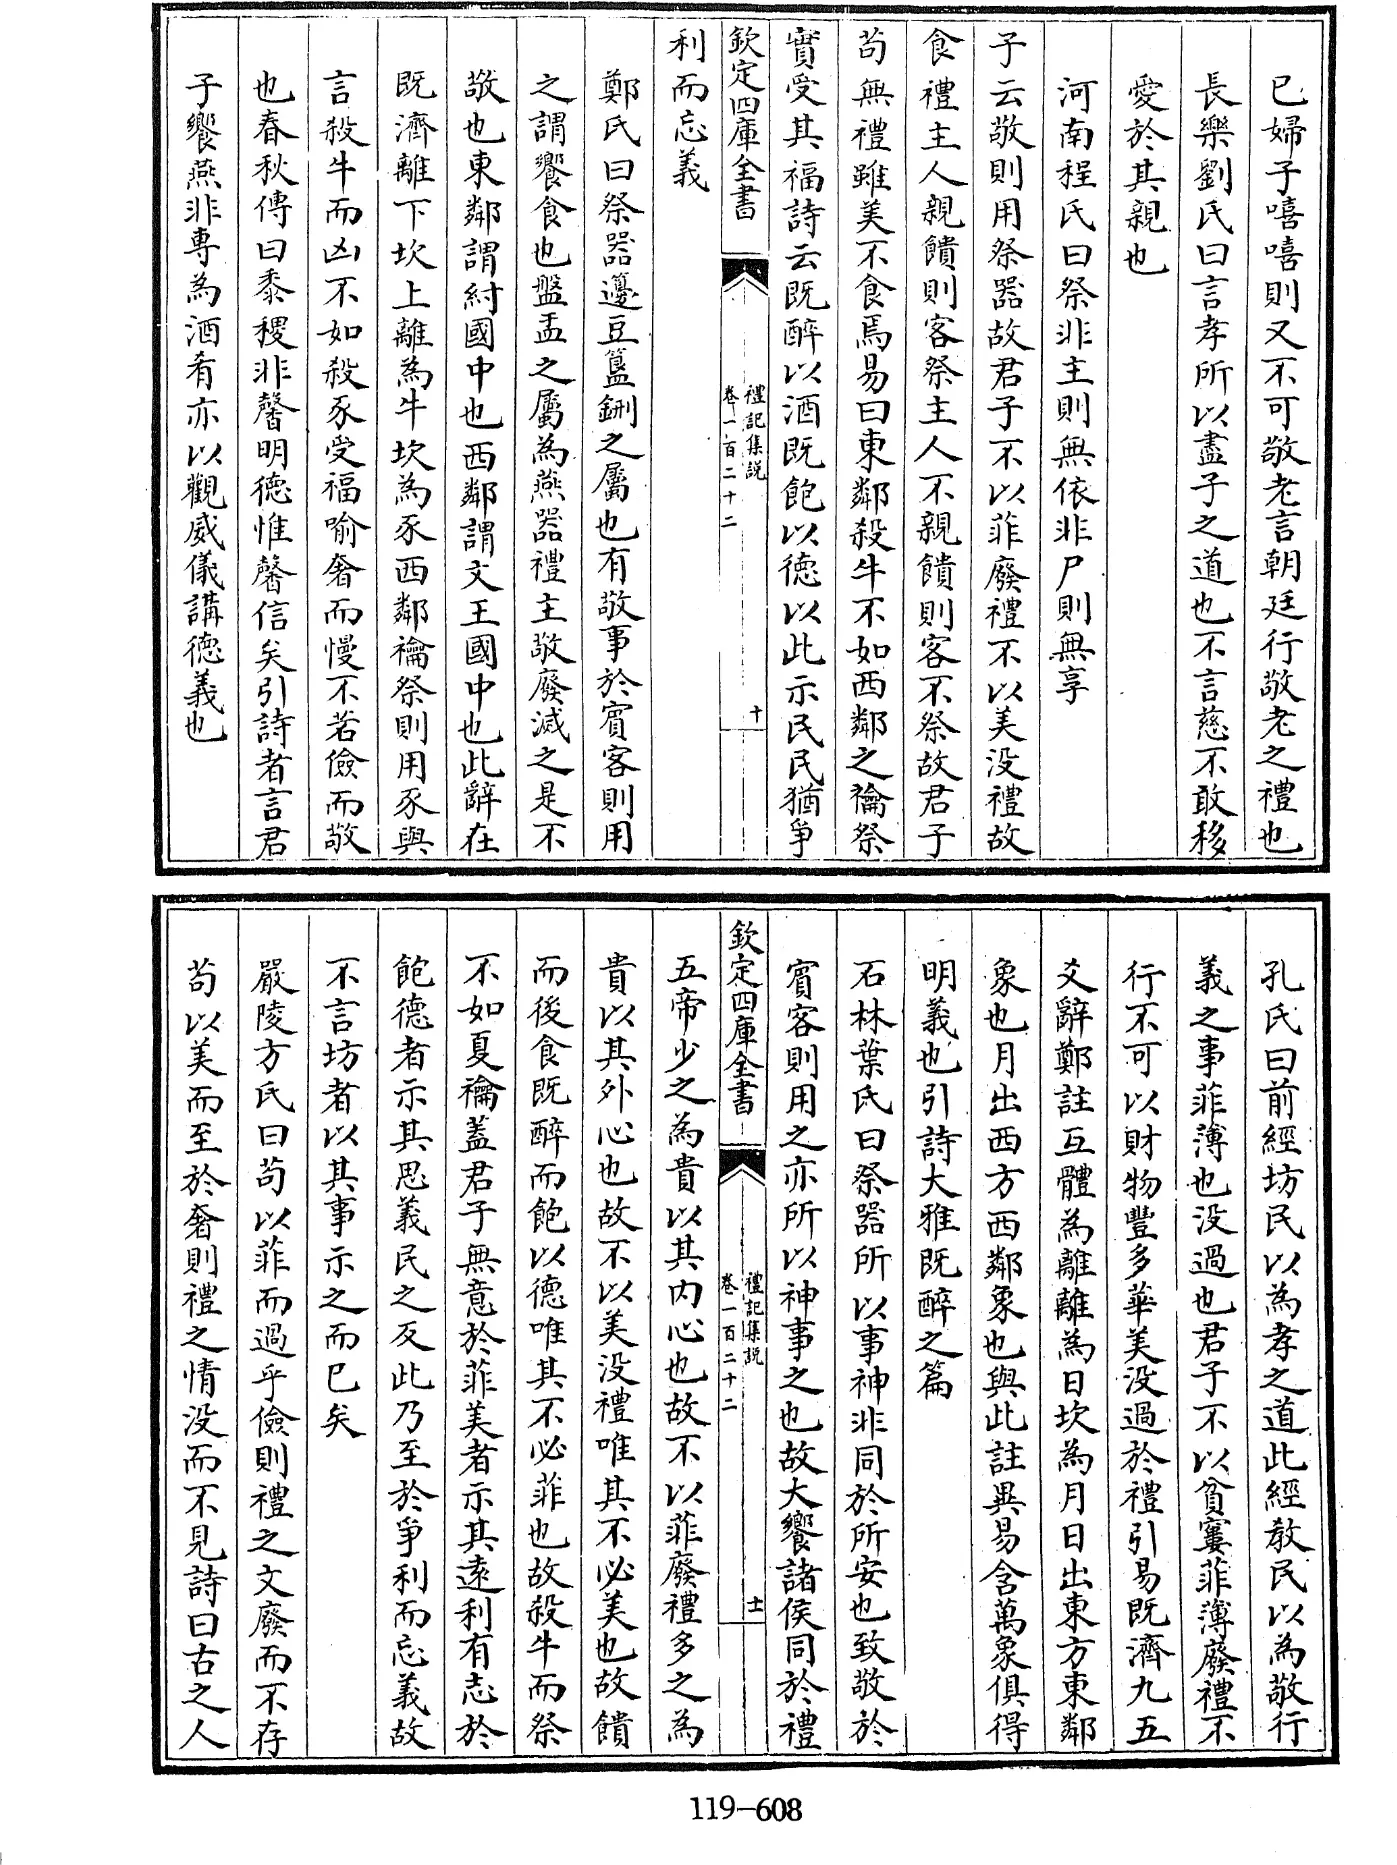 已婦子嘻嘻則又不可敬老言朝廷行敬老之禮也
長樂劉氏曰言孝所以盡子之道也不言慈不敢移
愛於其親也
河南程氏曰祭非主則無依非尸則無享
子云敬則用祭器故君子不以菲廢禮不以美没禮故
食禮主人親饋則客祭主人不親饋則客不祭故君子
苟無禮雖美不食焉易曰東鄰殺牛不如西鄰之禴祭
實受其福詩云既醉以酒既飽以德以此示民民猶爭
欽定四庫全書
禮記集説
卷一百二十二
十
利而忘義
鄭氏曰祭器籩豆簋鉶之屬也有敬事於賓客則用
之謂饗食也盤盂之屬為燕器禮主敬廢滅之是不
敬也東鄰謂紂國中也西鄰謂文王國中也此辭在
既濟離下坎上離為牛坎為豕西鄰禴祭則用豕與
言殺牛而凶不如殺豕受福喻奢而慢不若儉而敬
也春秋傳曰黍稷非馨明德惟馨信矣引詩者言君
子饗燕非專為酒肴亦以觀威儀講德義也
孔氏曰前經坊民以為孝之道此經教民以為敬行
義之事菲薄也没過也君子不以貧窶菲薄廢禮不
行不可以財物豐多華美没過於禮引易既濟九五
爻辭鄭註互體為離離為日坎為月日出東方東鄰
象也月出西方西鄰象也與此註異易含萬象俱得
明義也引詩大雅既醉之篇
石林葉氏曰祭器所以事神非同於所安也致敬於
賓客則用之亦所以神事之也故大饗諸侯同於禮
欽定四庫全書
禮記集説
卷一百二十二
十一
五帝少之為貴以其内心也故不以菲廢禮多之為
貴以其外心也故不以美没禮唯其不必美也故饋
而後食既醉而飽以德唯其不必菲也故殺牛而祭
不如夏禴蓋君子無意於菲美者示其遠利有志於
飽德者示其思義民之反此乃至於爭利而忘義故
不言坊者以其事示之而已矣
嚴陵方氏曰苟以菲而過乎儉則禮之文廢而不存
苟以美而至於奢則禮之情没而不見詩曰古之人
119-608